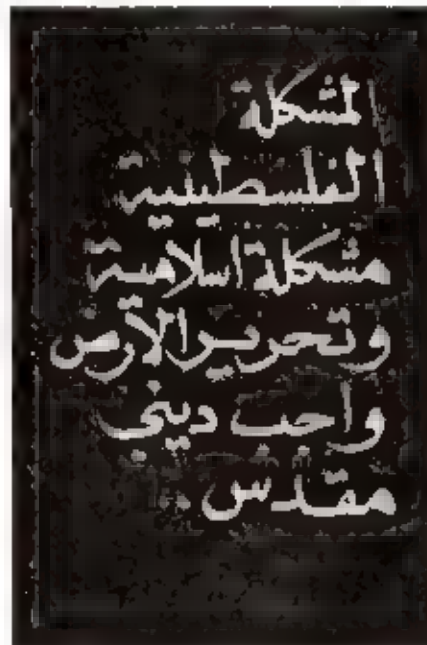 المشكلة
الفلسطينية
مشكلة اسلامية
وتحرير الأرض
واجب ديني
مقدس